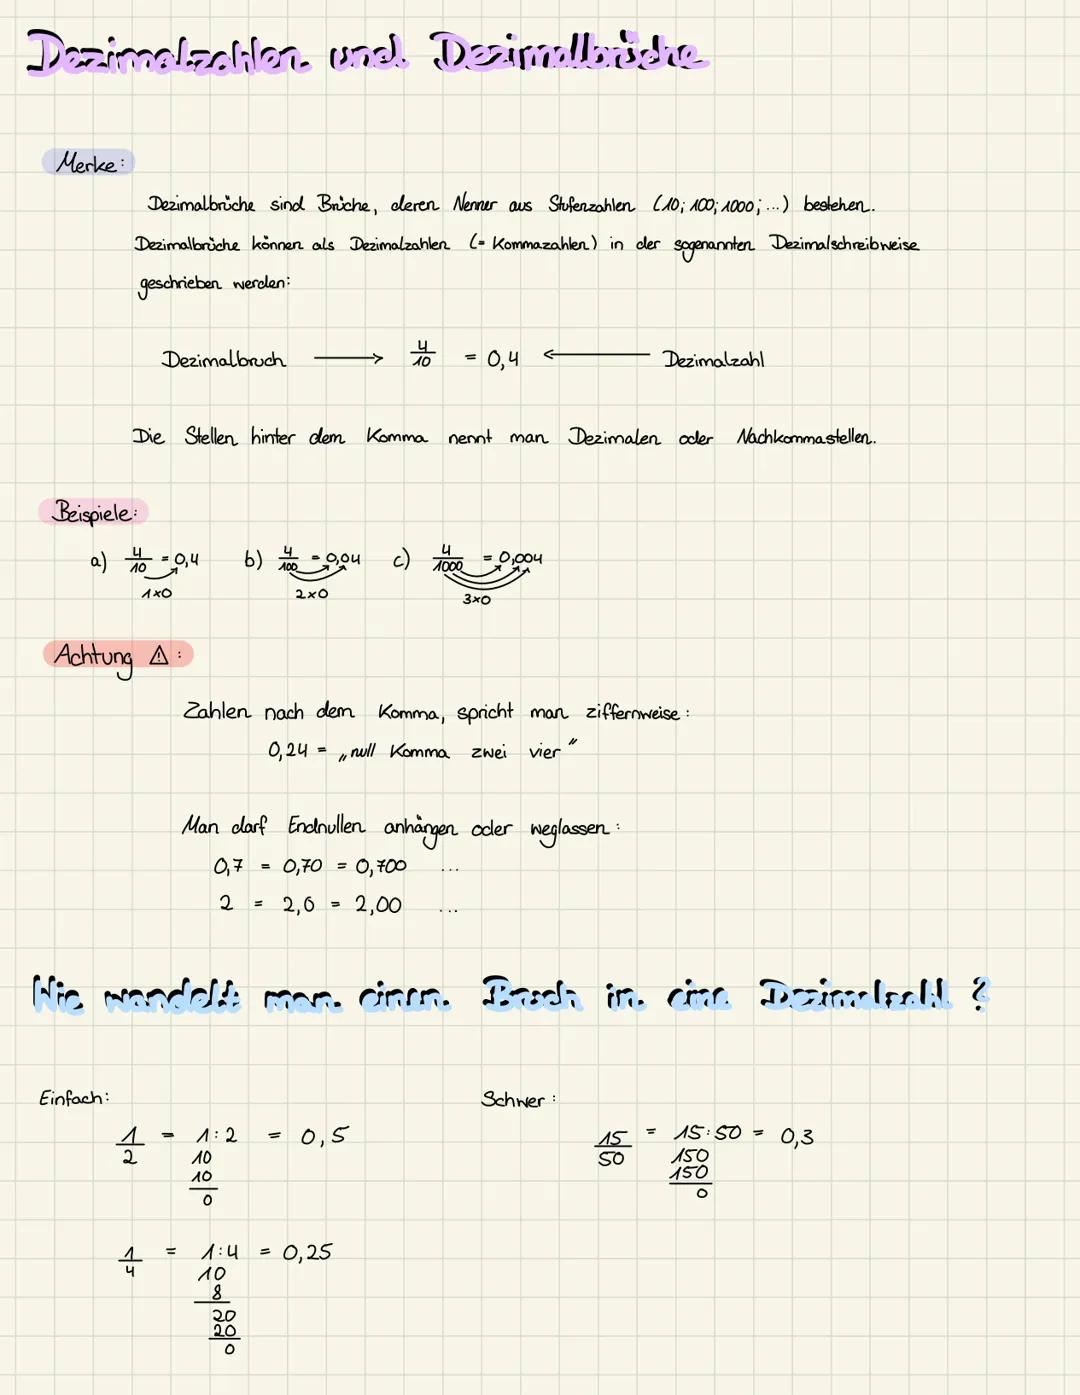 Dezimalzahlen und Dezimalbrüche
Merke:
Dezimalbrüche sind Brüche, deren Nenner aus Stufenzahlen (10; 100; 1000; ...) bestehen.
Dezimalbrüche können als Dezimalzahlen (= Kommazahlen) in der sogenannten Dezimalschreibweise
geschrieben werden:
Dezimalbruch ⟶ 4/10 = 0,4 ⟵ Dezimalzahl
Die Stellen hinter dem Komma nennt man Dezimalen oder Nachkommastellen.
Beispiele:
a) 4/10 = 0,4 b) 4/100 = 0,04 c) 4/1000 = 0,004
1×0 2×0 3×0
Achtung ⚠:
Zahlen nach dem Komma, spricht man ziffernweise:
0,24 = „null Komma zwei vier"
Man darf Endnullen anhängen oder weglassen:
0,7 = 0,70 = 0,700 ...
2 = 2,0 = 2,00 ...
Wie wandelt man einen Bruch in eine Dezimalzahl?
Einfach: Schwer:
1/2 = 1:2 = 0,5 15/50 = 15:50 = 0,3
10 150
10 150
0 0
1/4 = 1:4 = 0,25
10
8
20
20
0